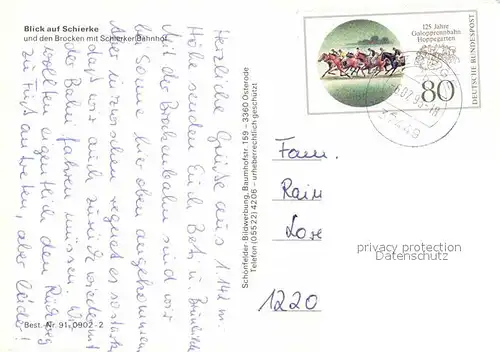 Blick auf Schierke
und den Brocken mit Schierker Bahnhof
Herzliche Grüße aus 1.142 m
Höhe senden Euch Beti u. Brünhilde
Mit der Brockenbahn sind wir
bei Sonne hier oben angekommen
Aber inzwischen regnet es so stark
dass wir auch zurück wieder mit
der Bahn fahren müssen. Wir
wollten eigentlich den Rückweg
zu Fuß antreten, aber leider!
Best.-Nr. 91.0902-2
Schönfelder Bildwerbung, Baumhofstr. 159 – 3360 Osterode
Telefon (05522) 4206 – urheberrechtlich geschützt
125 Jahre
Galopprennbahn
Hoppegarten
80
DEUTSCHE BUNDESPOST
Fam.
Rain
Lose
1220
privacy protection
Datenschutz